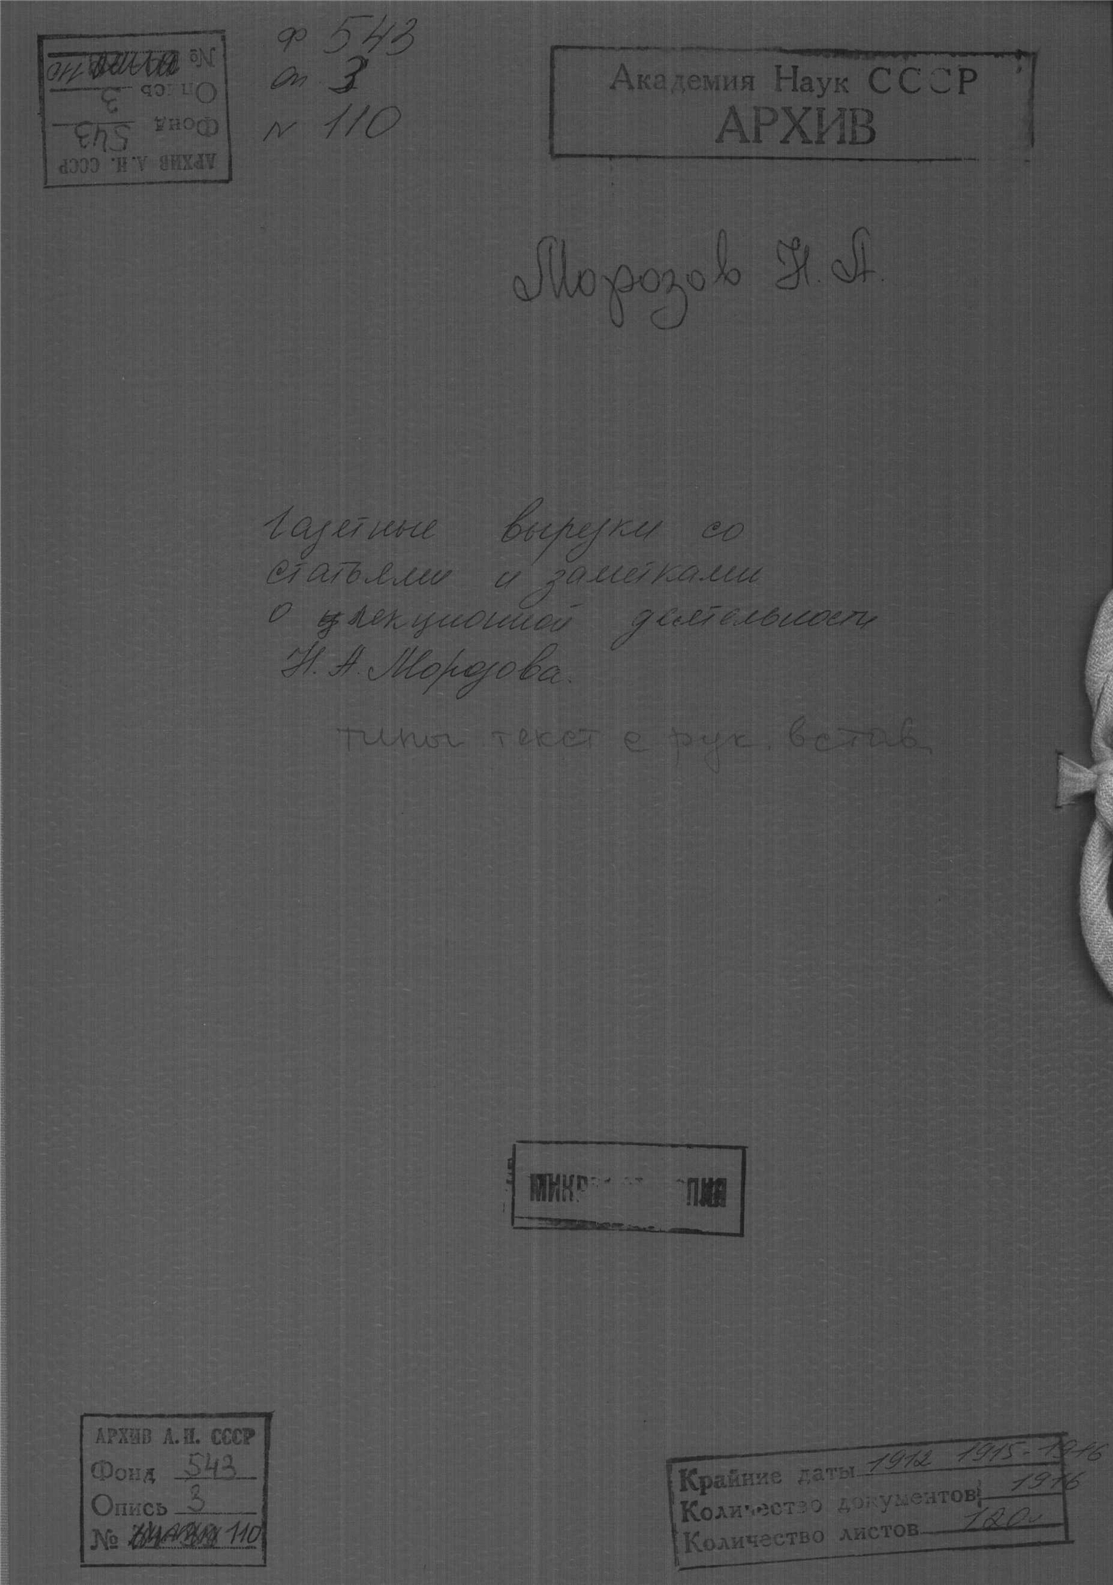 ф 543
оп 3
N 110
АРХИВ А.Н. СССР
Фонд 543
Опись 3
№ 110
Академия Наук СССР
АРХИВ
Морозов Н.А.
Газетные вырезки со
статьями и заметками
о лекционной деятельности
Н.А. Морозова.
текст с рук. встав.
АРХИВ А.Н. СССР
Фонд 543
Опись 3
№ 110
Крайние даты 1912 1915-1916
Количество документов 1916
Количество листов 120